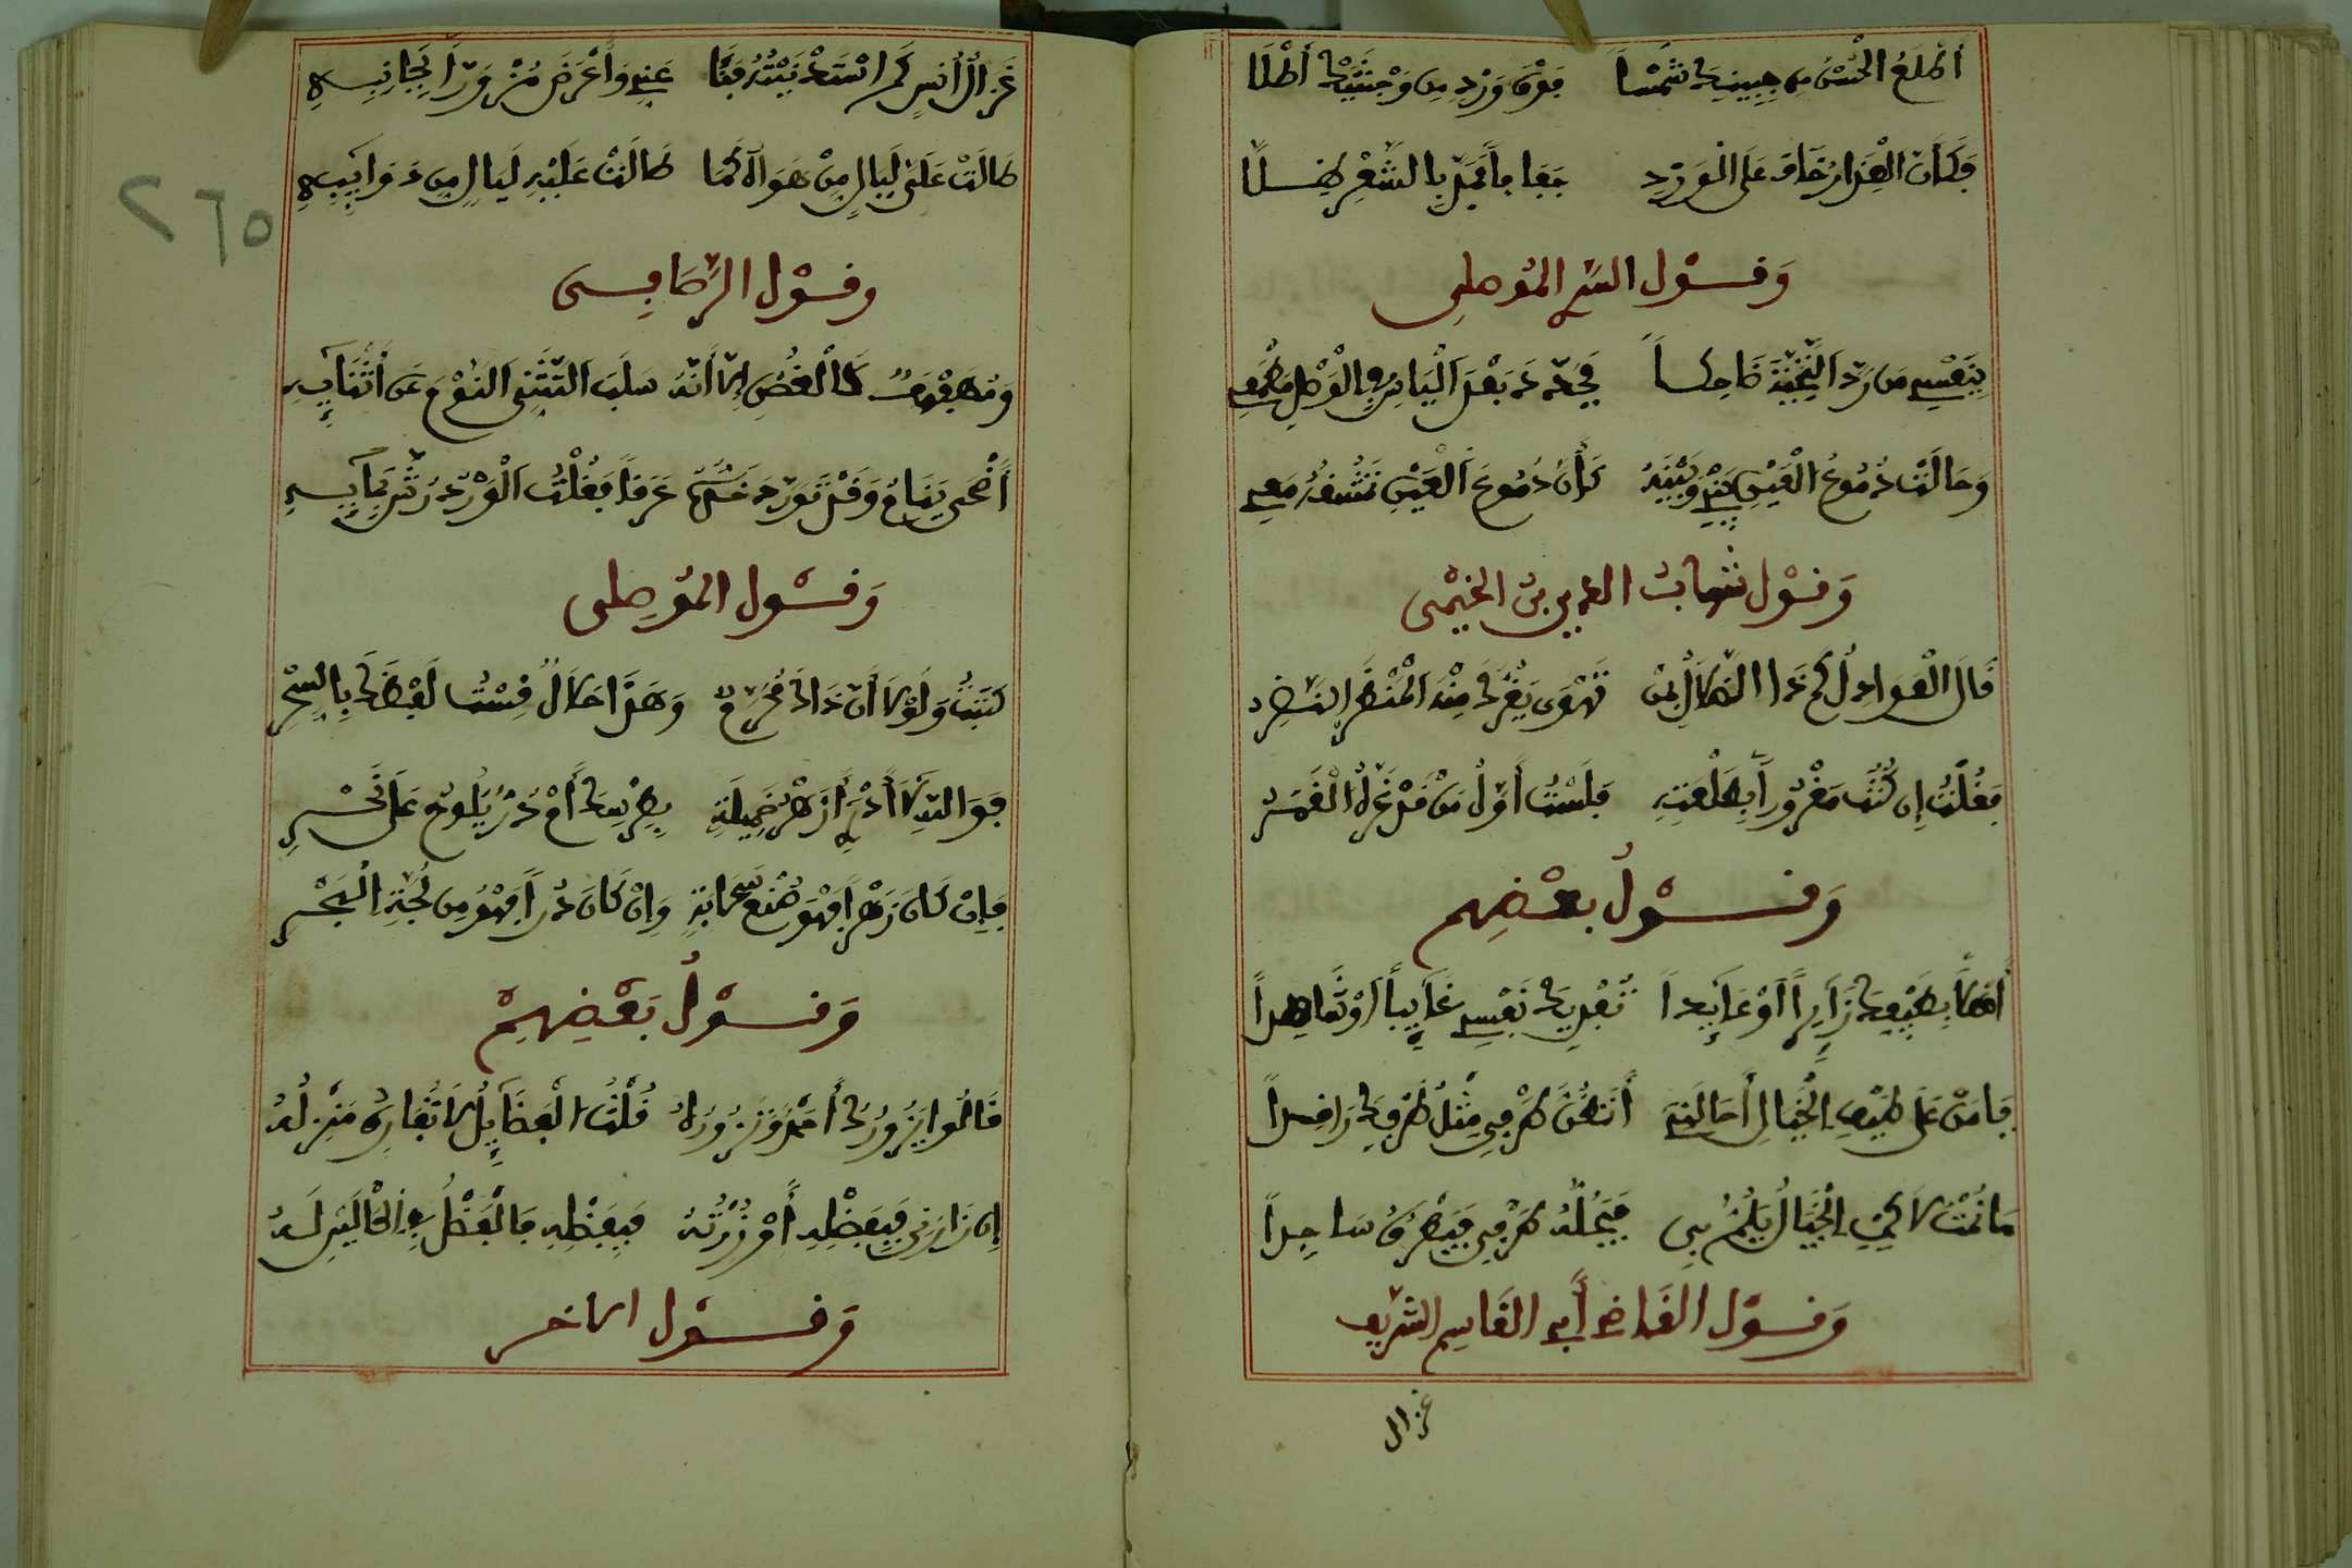 أَطْلَعَ الْحُسْنُ مِن جَبِينِكَ شَمْساً فَوْقَ وَرْدٍ مِن وَجْنَتَيْكَ أَطَلَّا
وَكَأَنَّ الْعِذَارَ خَافَ عَلَى الْوَرْدِ جَفَافاً فَمَدَّ بِالشَّعْرِ ظِلَّا
وَقَوْل السَّرِي الْمَوْصِلِي
بِنَفْسِي مَن رَدَّ التَّحِيَّةَ ضَاحِكاً فَجَدَّدَ بَعْدَ الْيَأْسِ فِي الْوَصْلِ مَطْمَعِي
وَحَالَتْ دُمُوعُ الْعَيْنِ بَيْنِي وَبَيْنَهُ كَأَنَّ دُمُوعَ الْعَيْنِ تَعْشَقُهُ مَعِي
وَقَوْل شهاب الدين بن الخيمى
قَالَ الْعَوَاذِلُ كَمْ هَذَا الضَّلَالُ بِمَنْ تَهْوَى يَغُرُّكَ مِنْهُ الْمَنْظَرُ النَّضِر
فَقُلْتُ إِن كُنْتُ مَغْرُوراً بِطَلْعَتِهِ فَلَسْتُ أَوَّلَ مَنْ قَدْ غَرَّهُ الْقَمَرُ
وَقَوْلُ بعْضِهِم
أَهْلاً بِطَيْفِكَ زَايِراً أَوْ عَايِداً تَفْدِيكَ نَفْسِي غَايِباً أَوْ شَاهِداً
يَا مَنْ عَلَى طَيْفِ الْخَيَالِ أَحَالَنِي أَتَظُنُّ طَرْفِي مِثْلَ طَرْفِكَ رَاقِداً
مَا نِمْتُ لَكِنِ الْخَيَالُ يَلُمُّ بِي فَيُجِلُّهُ طَرْفِي فَيُطْرِقُ سَاجِداً
وَقَوْل الْقَاضِي أَبِي الْقَاسِم الشَّرِيف
غزال
٢٦٥
غَزَالُ أُنْسٍ كَمِ اسْتَدْنَيْتُهُ فَنَأَى عَنِّي وَأَعْرَضَ مُزْوَرّاً بِجَانِبِهِ
طَالَتْ عَلَيَّ لَيَالٍ مِنْ هَوَاهُ كَمَا طَالَتْ عَلَيْهِ لَيَالٍ مِن ذَوَايِبِهِ
وقول الرصافى
وَمُهَفْهَفٍ كَالْغُصْنِ إِلَّا أَنَّهُ سَلَبَ التَّثَنِّي النَّوْمَ عَن أَثْنَايِهِ
أَضْحَى يَنَامُ وَقَدْ تَوَرَّدَ خَدُّهُ عَرَقاً فَقُلْتُ الْوَرْدُ رُشَّ بِمَايِهِ
وَقَوْل الموصلى
كَتَبْتَ وَلَوْلَا أَنَّ ذَاكَ مُحَرَّمٌ وَهَذَا حَلَالٌ قِسْتُ لَفْظَكَ بِالسِّحْرِ
فَوَاللَّهِ لَا أَدْرِي أَزَهْرُ خَمِيلَةٍ بِطِرْسِكَ أَمْ دُرٌّ يَلُوحُ عَلَى نَحْرِ
فَإِنْ كَانَ زَهْراً فَهْوَ صُنْعُ سَحَابَةٍ وَإِنْ كَانَ دُرّاً فَهْوَ مِن لُجَّةِ الْبَحْرِ
وَقَوْلُ بَعْضِهِمْ
قَالُوا يَزُورُكَ أَحْمَدٌ وَتَزُورُهُ قُلْتُ الْفَضَايِلُ لَا تُفَارِقُ مَنْزِلَهُ
إِن زَارَنِي فَبِفَضْلِهِ أَوْ زُرْتُهُ فَبِفَضْلِهِ فَالْفَضْلُ فِي الْحَالَيْنِ لَهُ
وَقَوْل الاخر